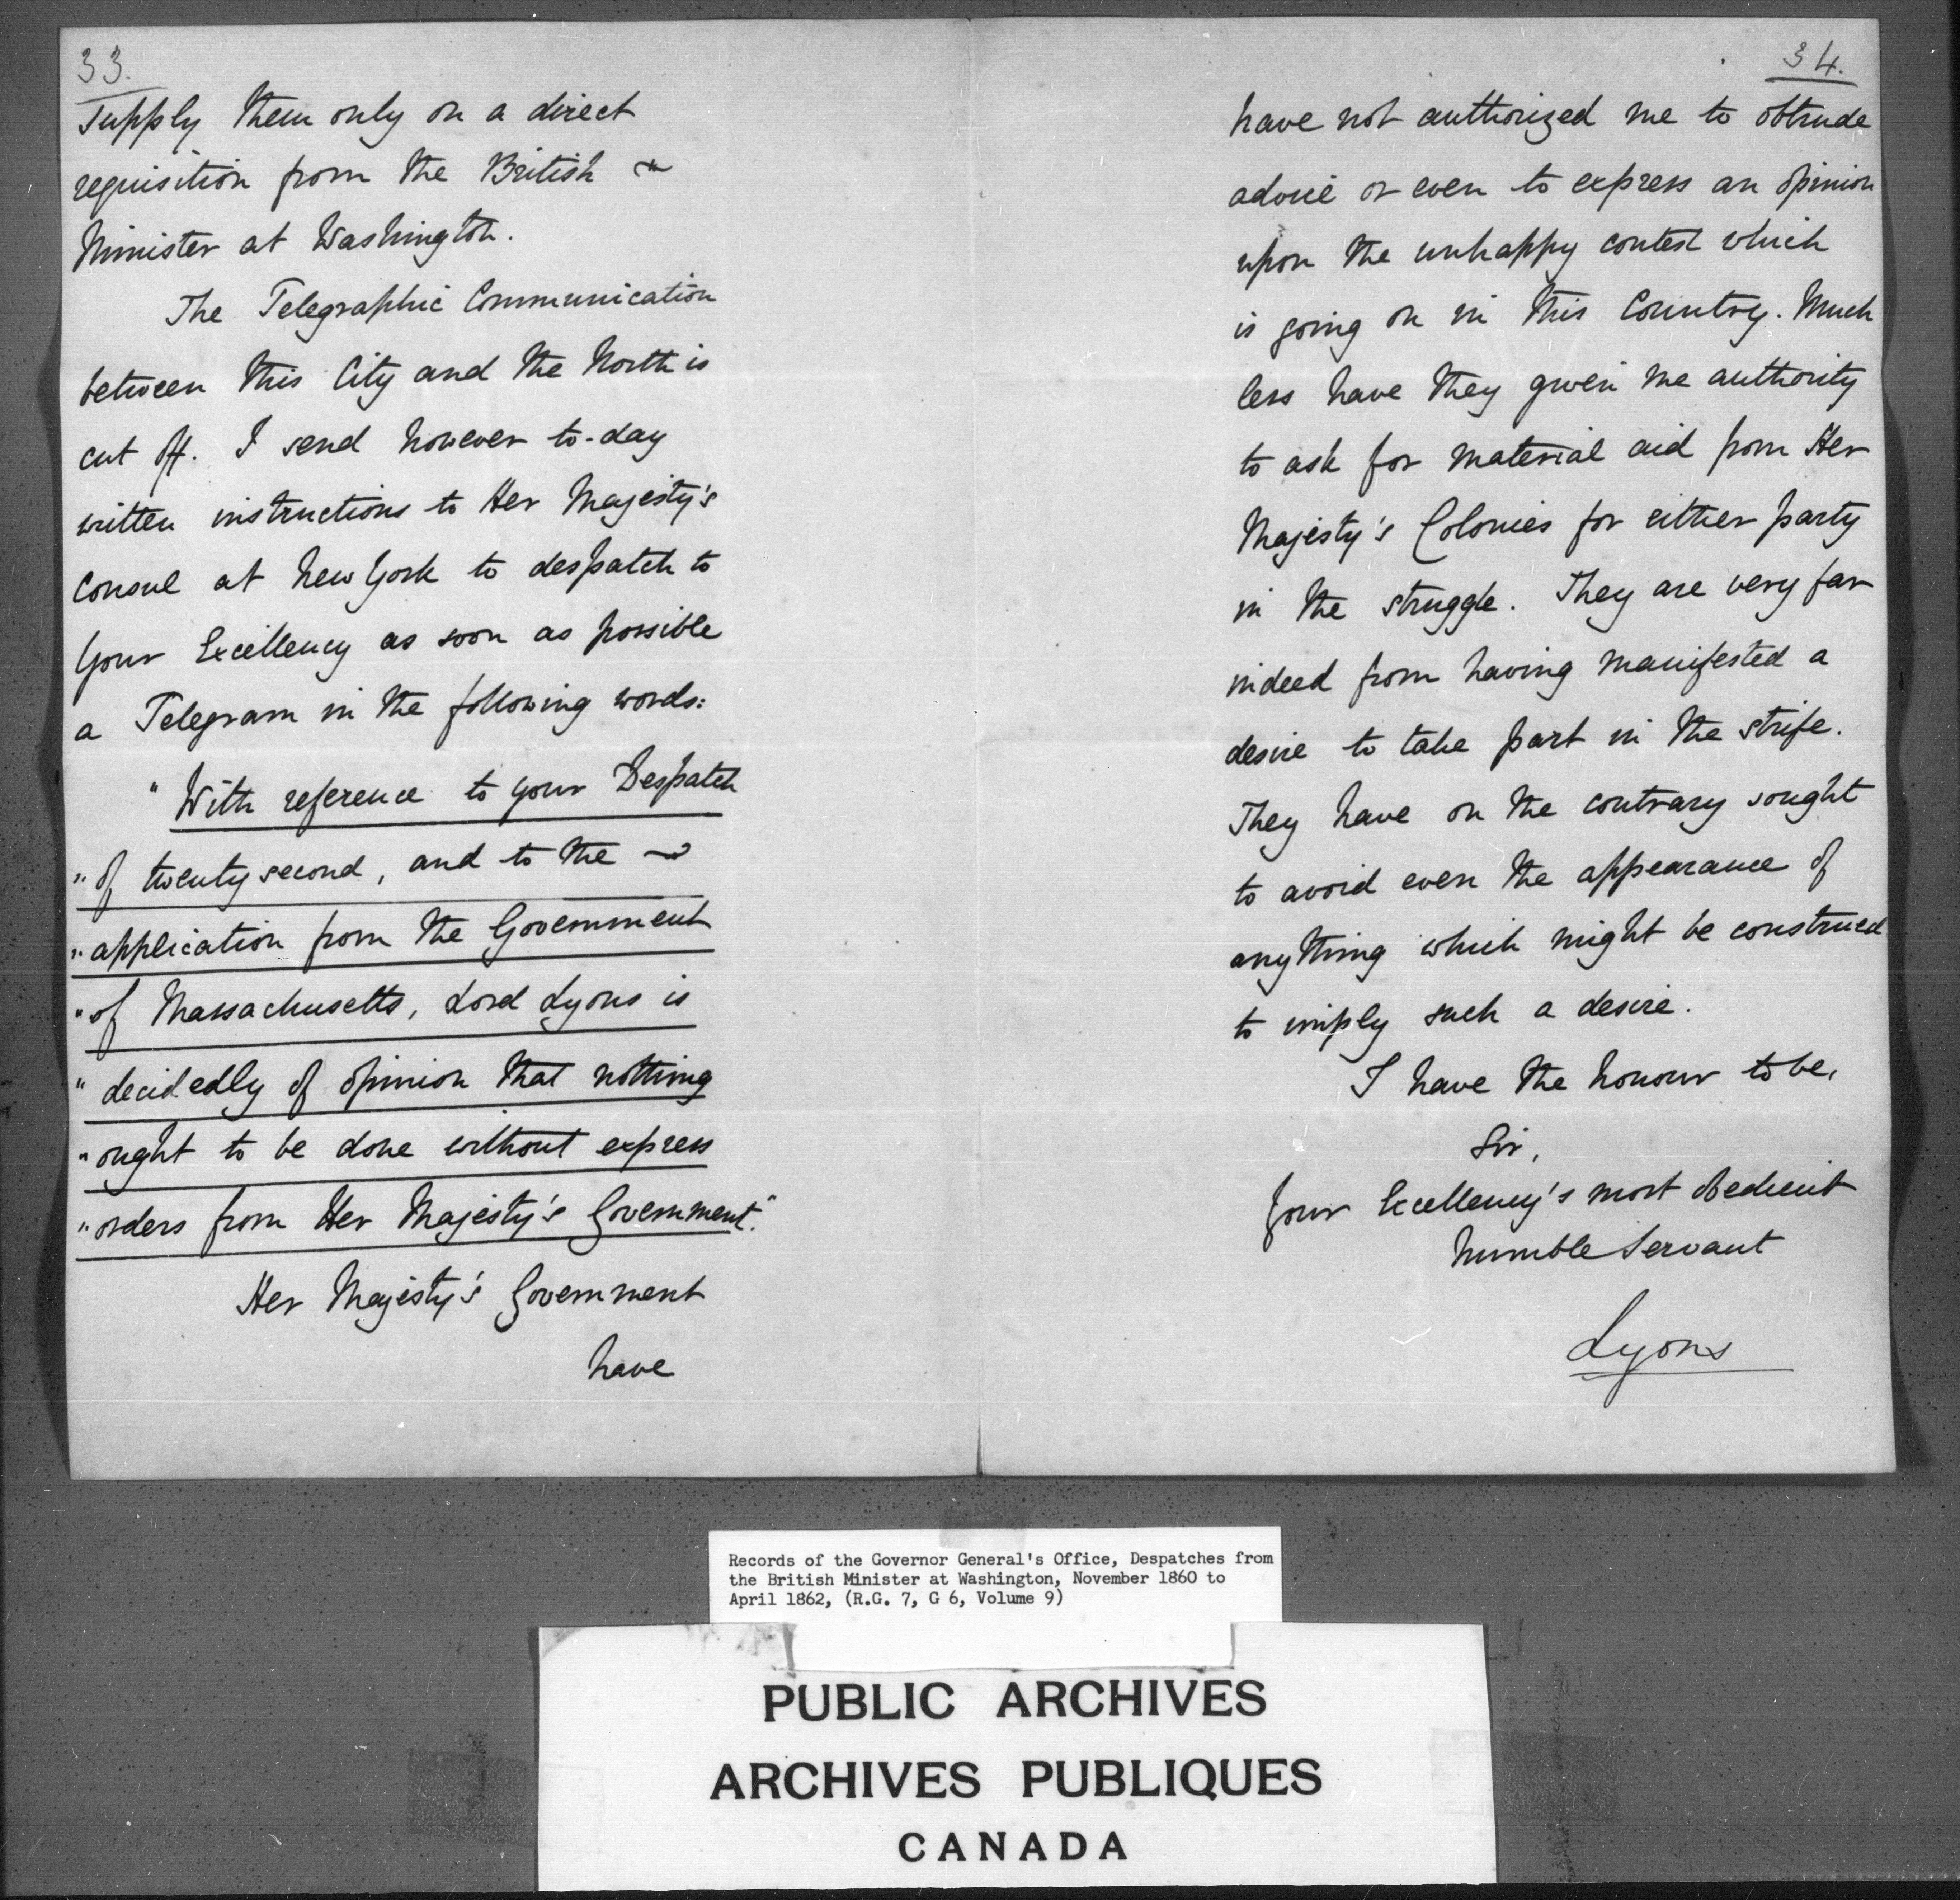 33.
supply them only on a direct
requisition from the British
Minister at Washington.
The Telegraphic Communication
between this City and the North is
cut off. I send however to-day
written instructions to Her Majesty's
Consul at New York to despatch to
Your Excellency as soon as possible
a Telegram in the following words:
"With reference to your Despatch
"of twenty second, and to the
"application from the Government
"of Massachusetts, Lord Lyons is
"decidedly of opinion that nothing
"ought to be done without express
"orders from Her Majesty's Government."
Her Majesty's Government
have
34.
have not authorized me to obtrude
advice or even to express an opinion
upon the unhappy contest which
is going on in this Country. Much
less have they given me authority
to ask for material aid from Her
Majesty's Colonies for either party
in the struggle. They are very far
indeed from having manifested a
desire to take part in the strife.
They have on the contrary sought
to avoid even the appearance of
anything which might be construed
to imply such a desire.
I have the honour to be,
Sir,
Your Excellency's most obedient
humble Servant
Lyons
Records of the Governor General's Office, Despatches from
the British Minister at Washington, November 1860 to
April 1862, (R.G. 7, G 6, Volume 9)
PUBLIC ARCHIVES
ARCHIVES PUBLIQUES
CANADA